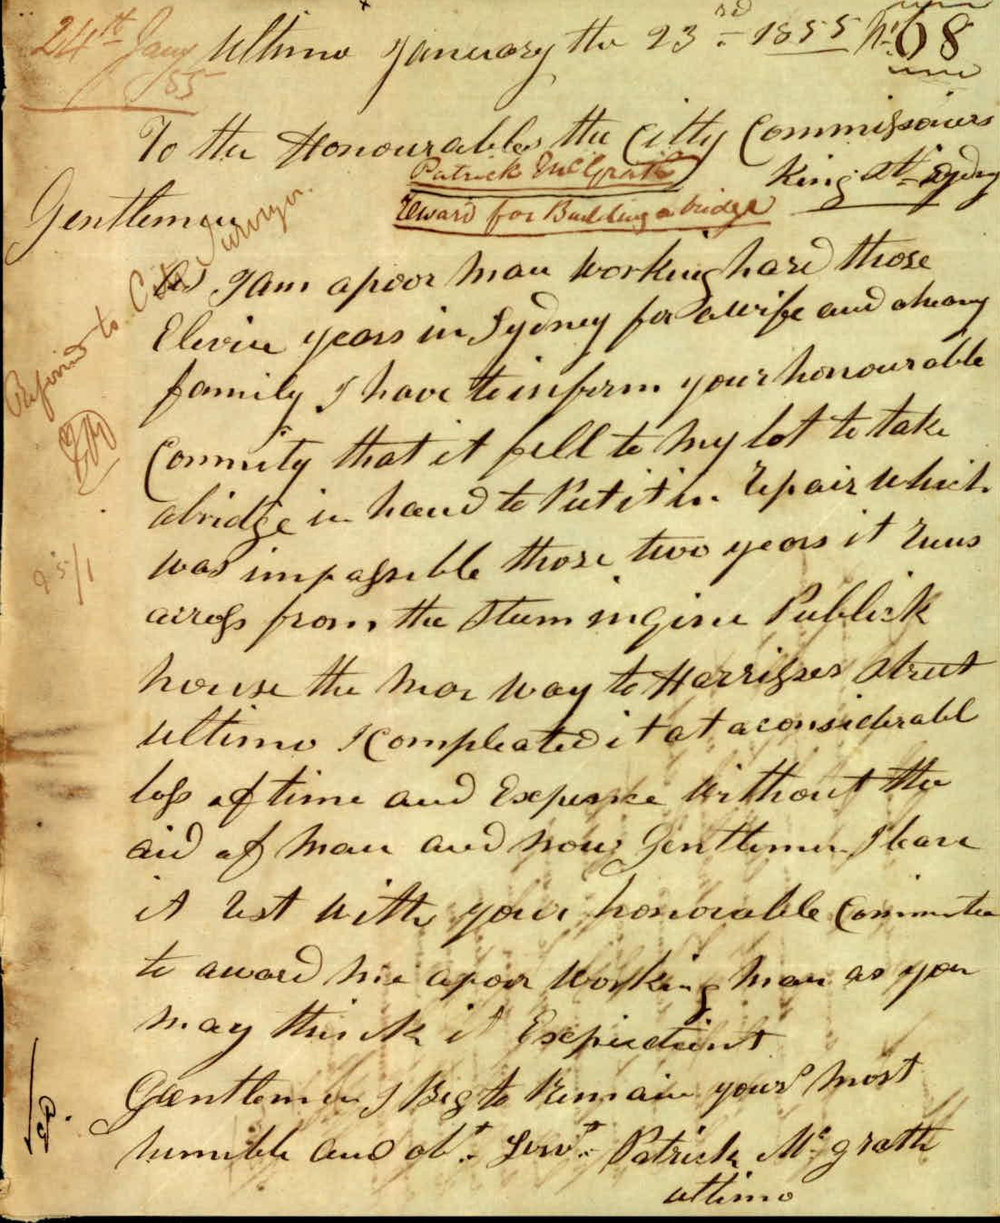 24th Jany
55
Ultimo January the 23rd 1855 No 68
To the Honourables the Citty Commissioners
King St Sydny
Patrick McGrath
Reward for Building a bridge
Gentlemen
Referred to City Surveyor.
25/1
As I am apoor man working hard those
Elevin years in Sydney for awife and aheavy
family I have to inform your honourable
Commity that it fell to my lot to take
abridge in hand to Put it in Repair which
was impassible those two years it Runs
across from the Steem ingine Publick
house the Way to Harrisses Street
Ultimo I Compleated it at aconsiderabl
loss of time and Expence Without the
aid of man and now Gentlemen I leave
it Rest With your honorable Committee
to award me apoor Working man as you
may think it Expiedient
Gentlemen I Beg to Remain yours most
humble and obt Servt Patrick McGrath
ultimo